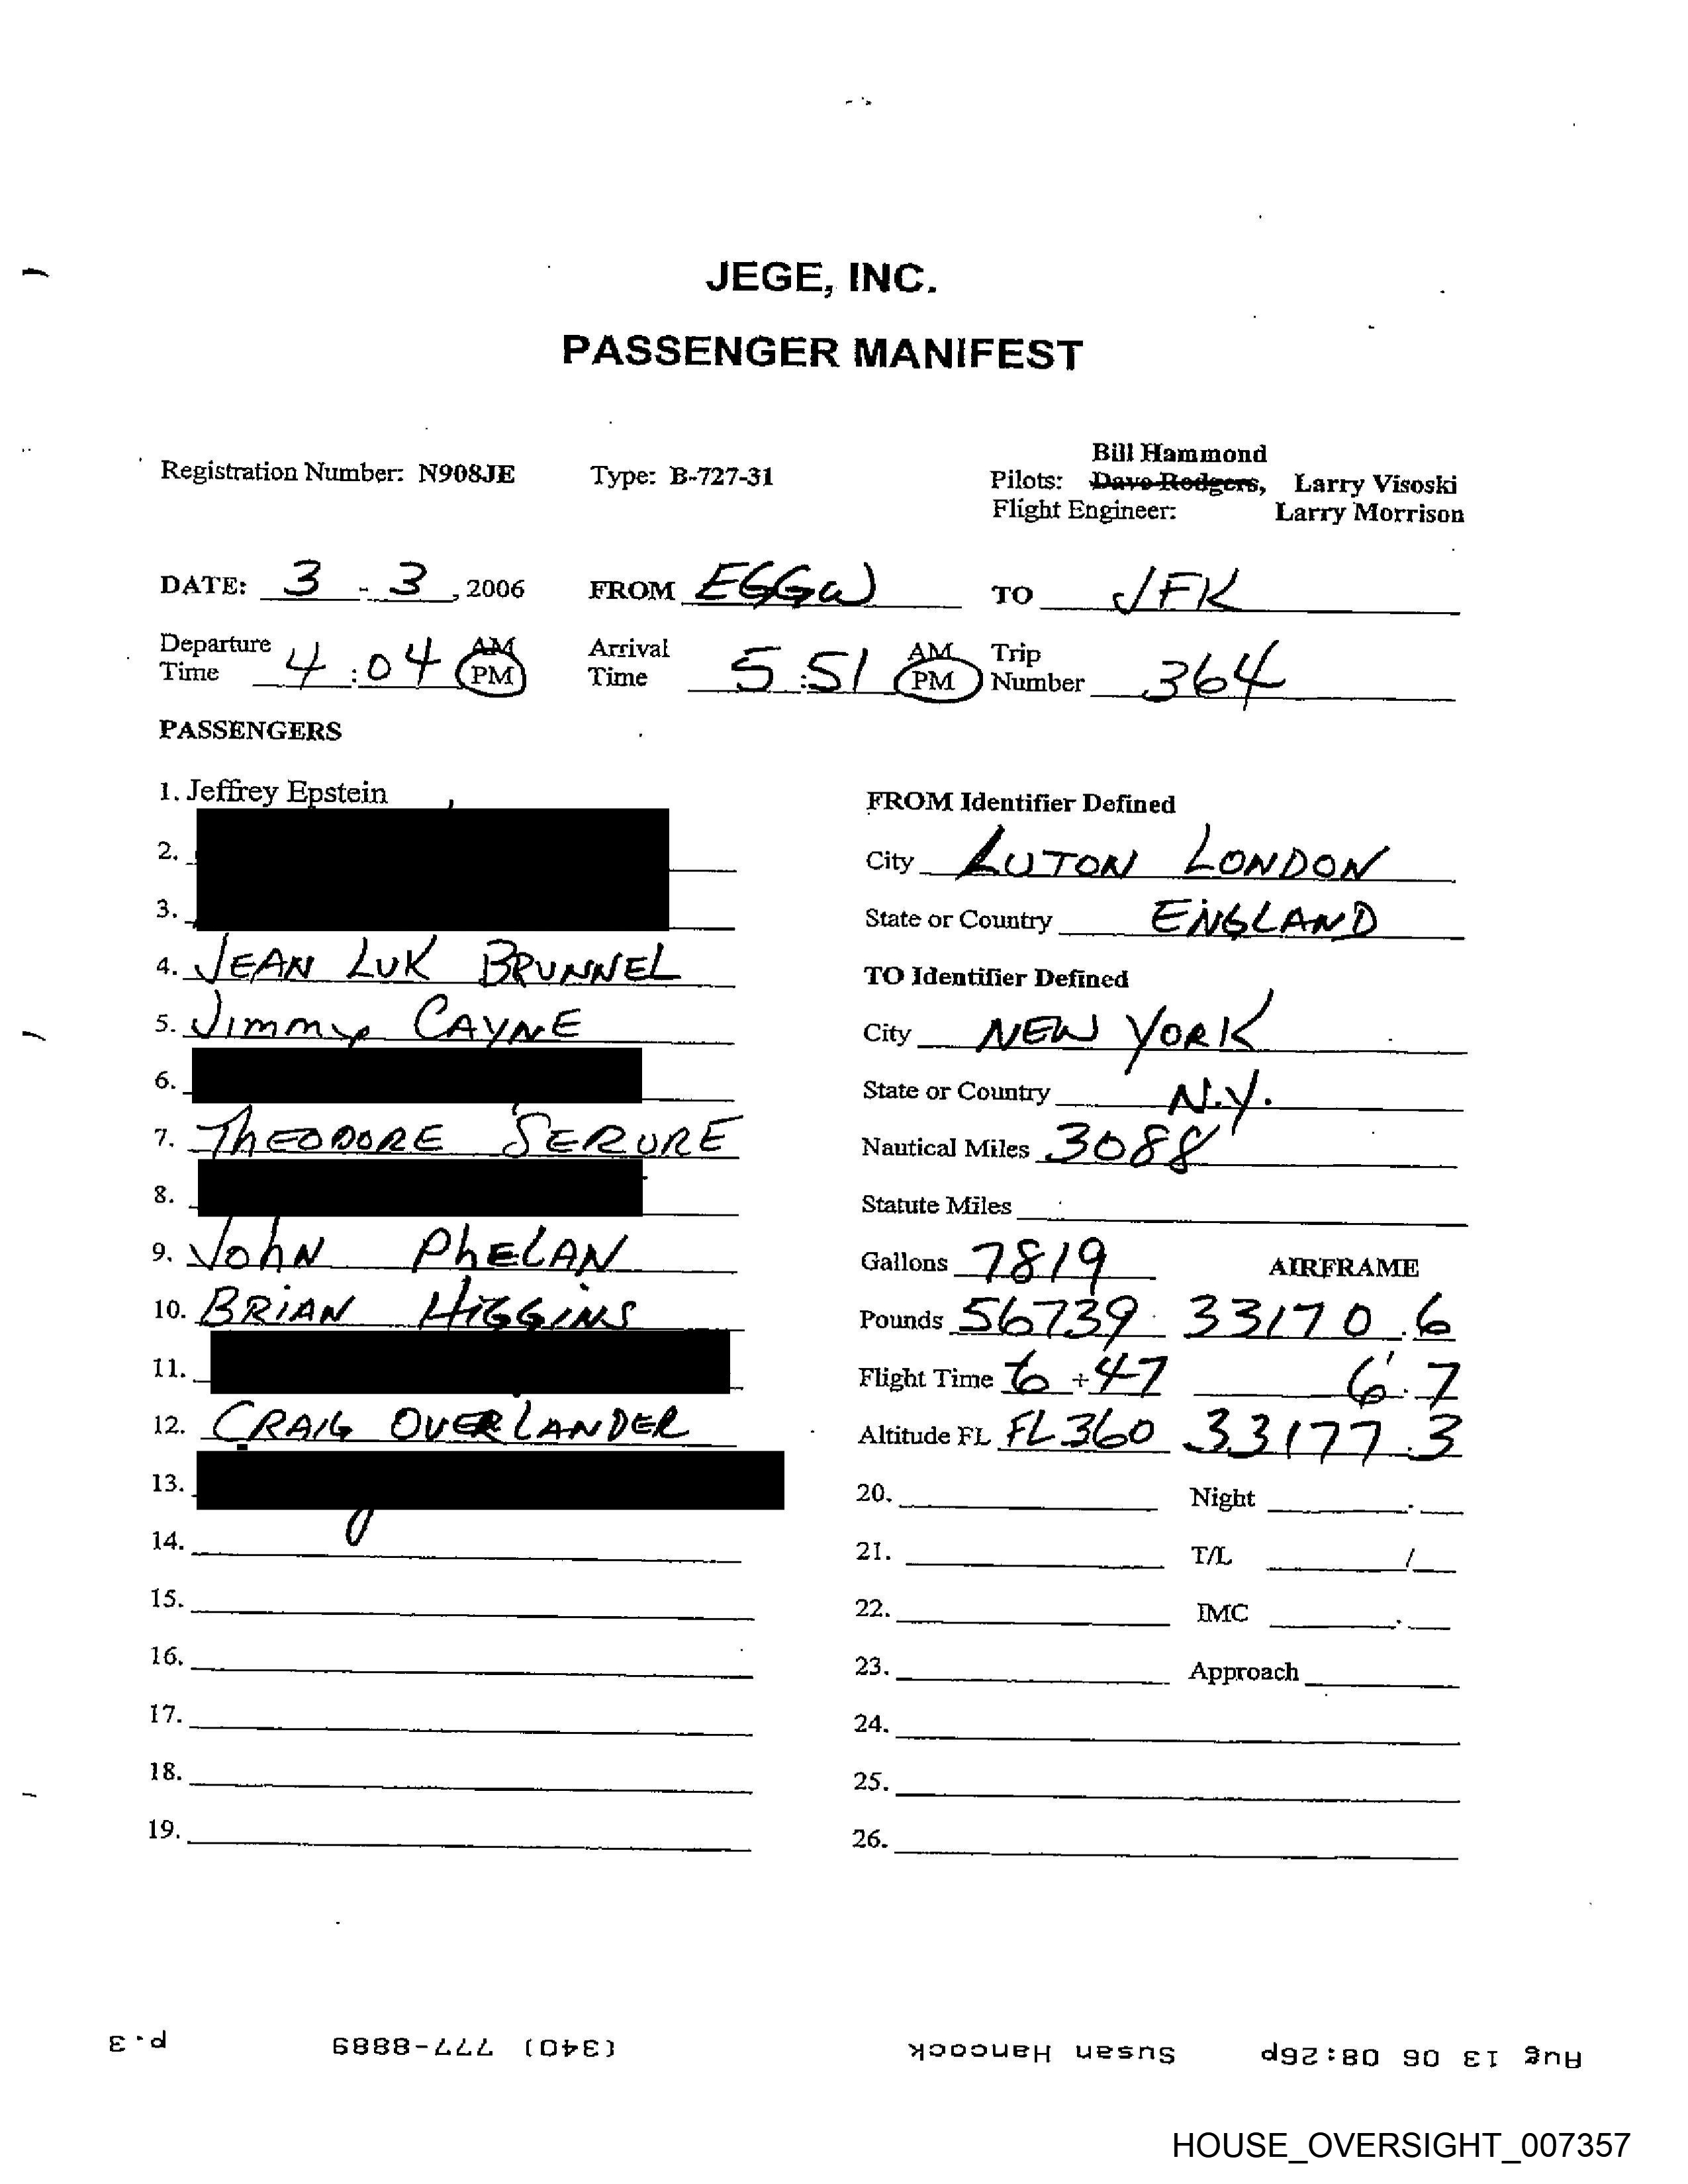 JEGE, INC.
PASSENGER MANIFEST
Bill Hammond
Registration Number: N908JE Type: B-727-31 Pilots: Dave Rodgers, Larry Visoski
Flight Engineer: Larry Morrison
DATE: 3 - 3, 2006 FROM EGGW TO JFK
Departure Time 4:04 AM PM Arrival Time 5:51 AM PM Trip Number 364
PASSENGERS
1. Jeffrey Epstein
2.
3.
4. JEAN LUK BRUNNEL
5. Jimmy CAYNE
6.
7. THEODORE SERURE
8.
9. JOHN PHELAN
10. BRIAN HIGGINS
11.
12. CRAIG OVERLANDER
13.
14.
15.
16.
17.
18.
19.
FROM Identifier Defined
City LUTON LONDON
State or Country ENGLAND
TO Identifier Defined
City NEW YORK
State or Country N.Y.
Nautical Miles 3088
Statute Miles
Gallons 7819 AIRFRAME
Pounds 56739 33170.6
Flight Time 6+47 6.7
Altitude FL FL360 33177.3
20. Night
21. T/L /
22. IMC
23. Approach
24.
25.
26.
Aug 13 06 08:26p Susan Hancock (340) 777-8889 p.3
HOUSE_OVERSIGHT_007357